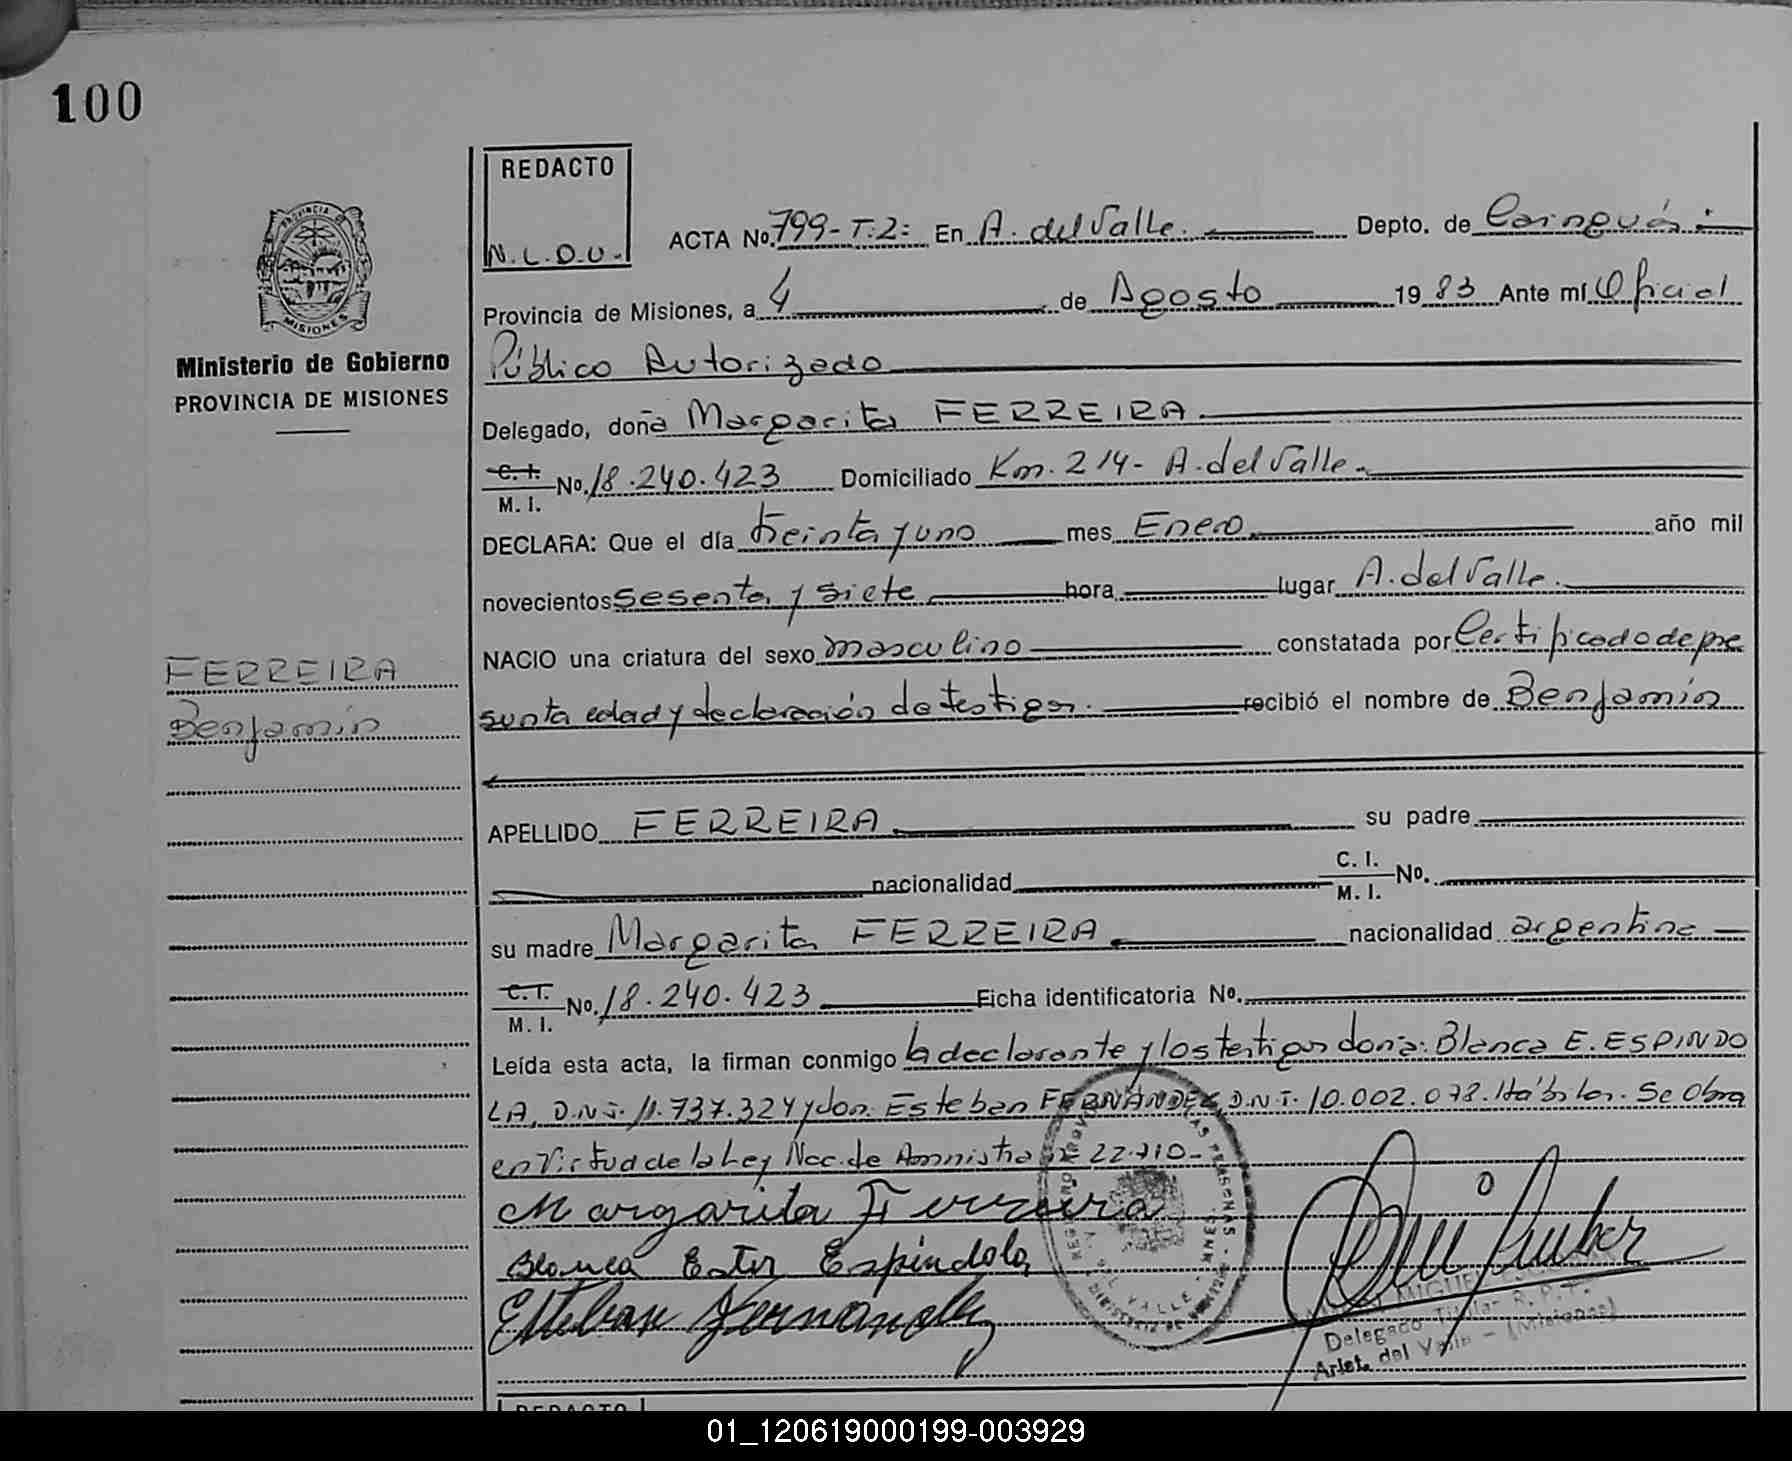 100
REDACTO
N.L.D.U.
ACTA No. 799-T:2: En A. del Valle. Depto. de Cainguás
Provincia de Misiones, a 4 de Agosto 1983 Ante mí Oficial
Público Autorizado
Ministerio de Gobierno
PROVINCIA DE MISIONES
Delegado, doña Margarita FERREIRA.
C. I.
M. I. No. 18.240.423 Domiciliado Km. 214- A. del Valle.
DECLARA: Que el día treinta y uno mes Enero año mil
novecientos sesenta y siete hora lugar A. del Valle.
NACIO una criatura del sexo masculino constatada por Certificado de pre
FERREIRA
Benjamín
sunta edad y declaración de testigos. recibió el nombre de Benjamín
APELLIDO FERREIRA su padre
nacionalidad C. I.
M. I. No.
su madre Margarita FERREIRA nacionalidad argentina
C. I.
M. I. No. 18.240.423 Ficha identificatoria No.
Leída esta acta, la firman conmigo la declarante y los testigos doña: Blanca E. ESPINDO
LA, D.N.I. 11.737.324 y don: Esteban FERNÁNDEZ D.N.I. 10.002.078. Hábiles. Se Obra
en Virtud de la Ley Nac. de Amnistía 22.710-
Margarita Ferreira
Blanca Ester Espíndola
Esteban Fernandez
MIGUEL
Delegado Titular R. P. P.
Arist. del Valle - (Misiones)
REDACTO
01_120619000199-003929